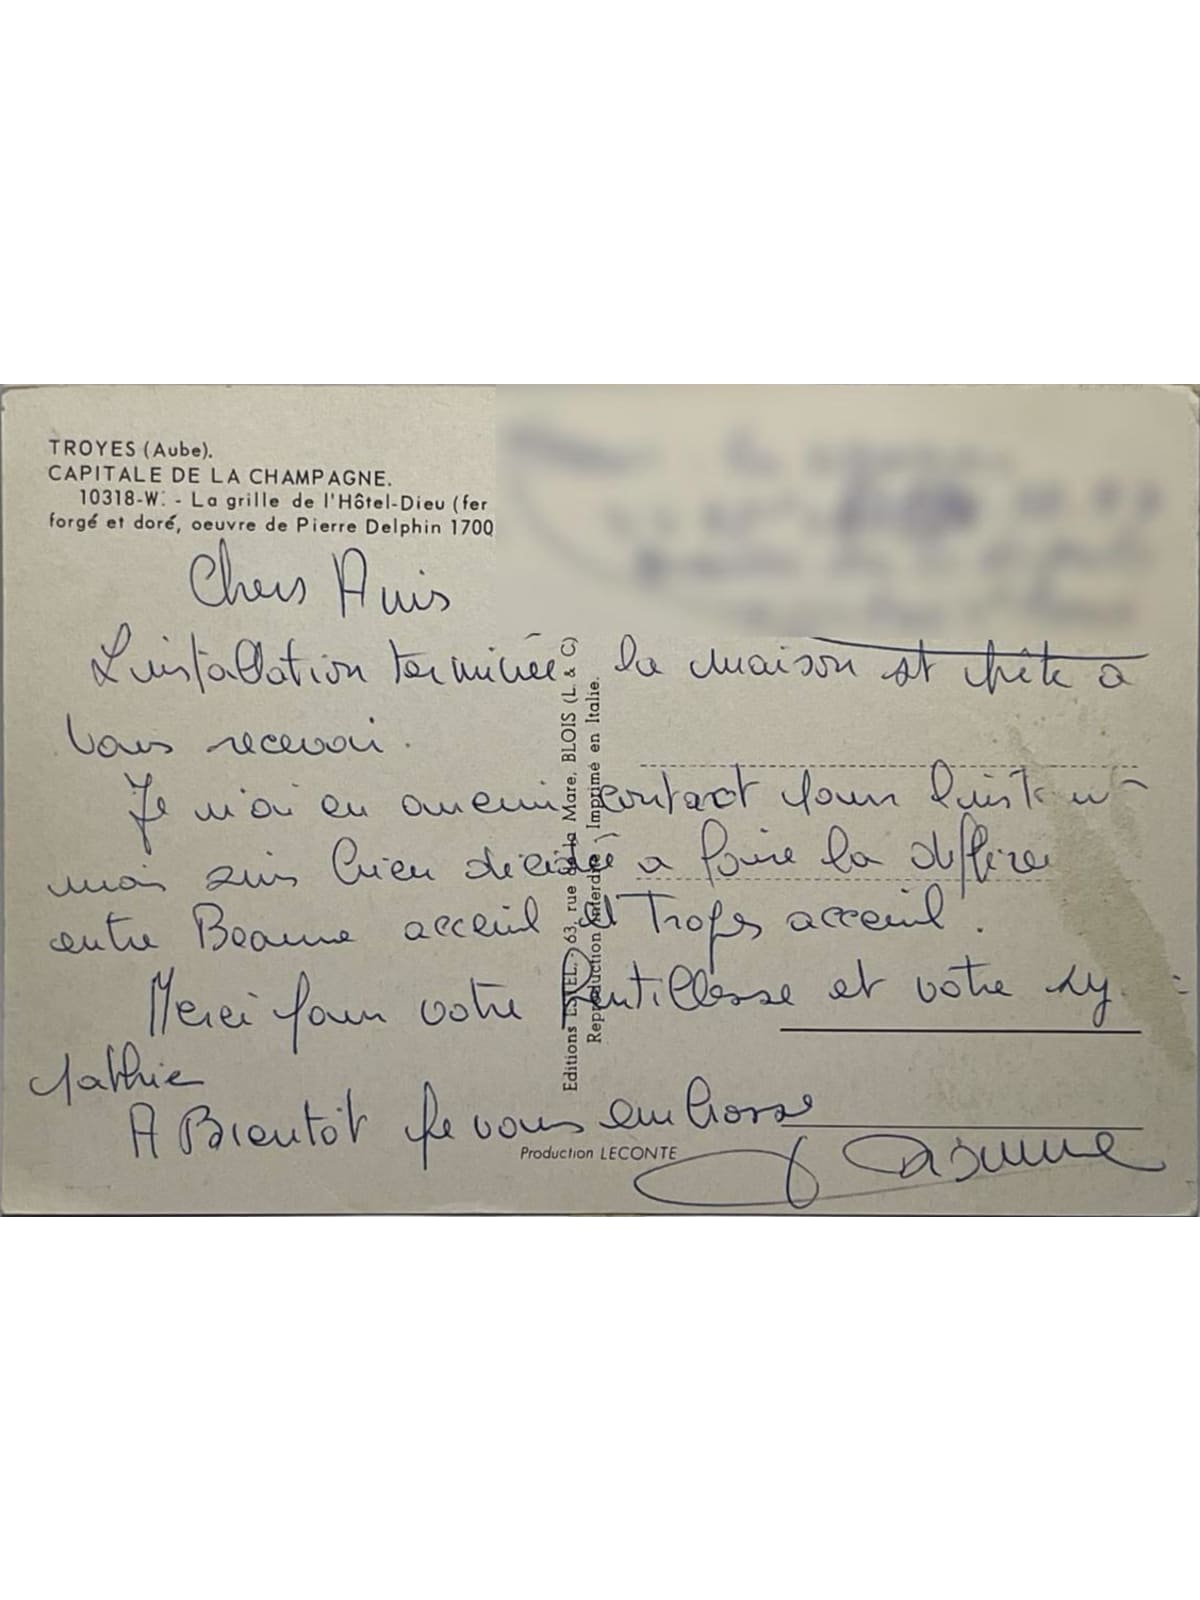 TROYES (Aube).
CAPITALE DE LA CHAMPAGNE.
10318-W. - La grille de l'Hôtel-Dieu (fer
forgé et doré, oeuvre de Pierre Delphin 1700
Chers Amis
L'installation terminée la maison est prête à
vous recevoir.
Je n'ai eu aucun contact pour l'instant
mais suis bien décidée a faire la
entre Beaune acceuil et Troyes acceuil.
Merci pour votre Gentillesse et votre sym
pathie
A Bientôt Je vous embrasse
Editions ESTEL, 63, rue de la Mare, BLOIS (L. & C)
Reproduction interdite Imprimé en Italie.
Production LECONTE